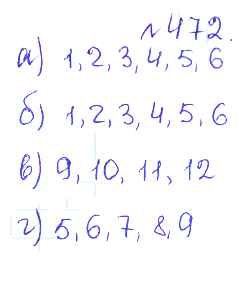 №472.
а) 1, 2, 3, 4, 5, 6
б) 1, 2, 3, 4, 5, 6
в) 9, 10, 11, 12
г) 5, 6, 7, 8, 9